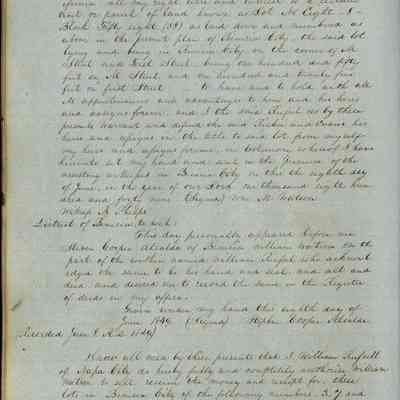 forever all my right title and interest to a certain
lot or parcel of land known as Lot No Eight 8
Block Fifty eight (58) as laid down and numbered as
above in the present plan of Benicia City the said lot
lying and being in Benicia City on the corner of M
Street and First Street being one hundred and fifty
feet on M Street and one hundred and twenty five
feet on first Street to have and to hold with all
its appurtenances and advantages to him and his heirs
and assigns forever and I the said do by these
presents warrant and defend the said and his
heirs and assigns in the title to said lot from myself
my heirs and assigns forever, in testimony whereof I have
hereunto set my hand and seal in the presence of the
witness in Benicia City on this the eighth day
of June in the year of our Lord one thousand eight hun
dred and forty nine (Signed) Wm M Watson
Witness A Phelps
District of Benicia to wit:
This day personally appeared before me
Stephen Cooper Alcalde of Benicia William Watson on the
part of the within named William who acknowl
edged the same to be his hand and seal and act and
deed and desired me to record the same in the Register
of deeds in my office.
Given under my hand this eighth day of
June 1849 (Signed) Stephen Cooper Alcalde
Recorded June 8 A.D. 1849
Know all men by these presents that I William
of Napa City do hereby fully and completely authorise William
Watson to sell receive the money and receipt for three
lots in Benicia City of the following numbers 5.7 and